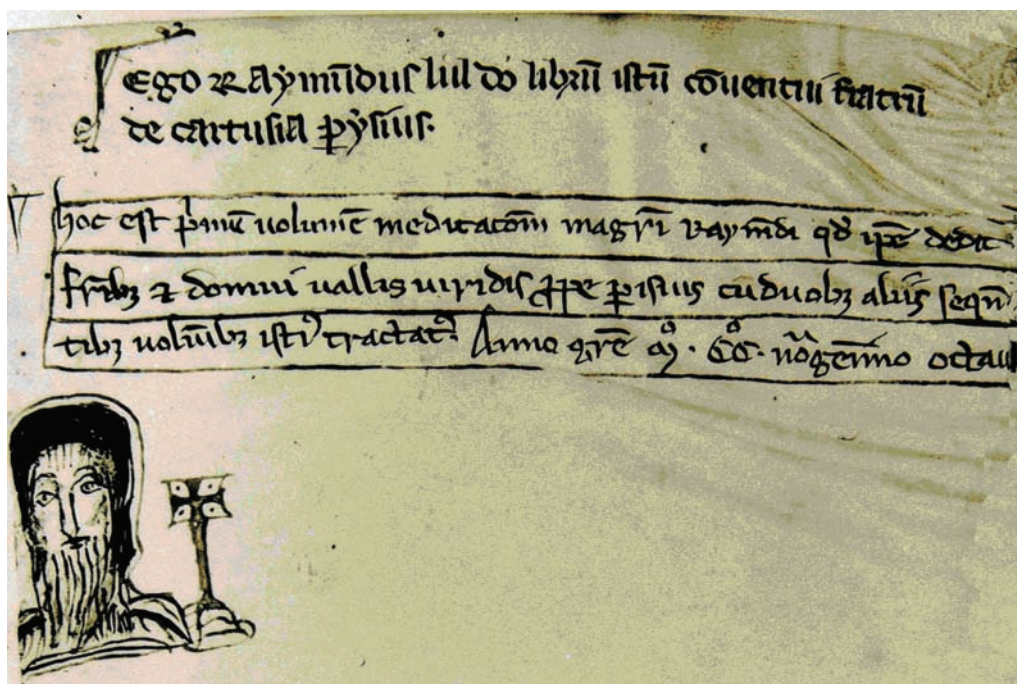 Ego Raymūdus lul do librū istū cōuentui fratrū
de cartusia pysius.
hoc est pmū uolumē meditacōm magrī Raymdi qd ipē dedit
frībꝫ ⁊ domui uallis uiridis ꝓpe pisius cū duobꝫ aliis seqn
tibꝫ uolūibꝫ isti⁹ tractat⁹. Anno grē mº. CCº. nōgesimo octau